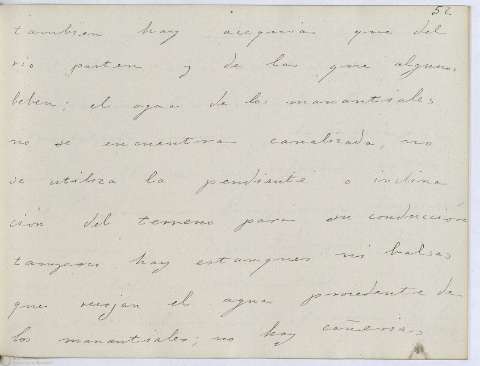 52
tambien hay acequias que del
rio parten y de las que algunos
beben; el agua de los manantiales
no se encuentra canalizada, no
se utiliza la pendiente o inclina
ción del terreno para su conducción
tampoco hay estanques ni balsas
que recojan el agua procedente de
los manantiales; no hay cañerias